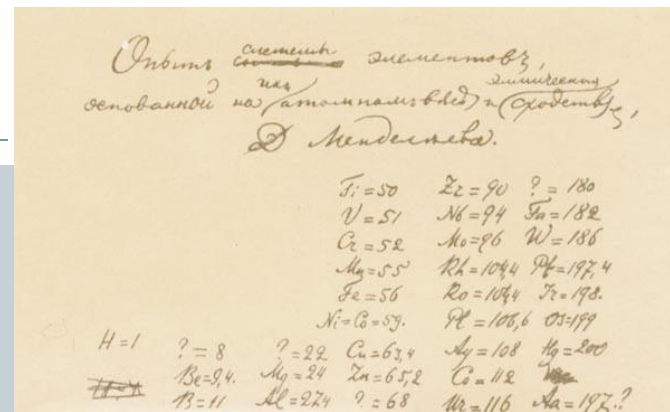 Опытъ системы элементовъ,
основанной на ихъ атомномъ вѣсѣ и химическомъ сходствѣ,
Д Менделѣева.
Ti=50 Zr=90 ?=180
V=51 Nb=94 Ta=182
Cr=52 Mo=96 W=186
Mn=55 Rh=104,4 Pt=197,4
Fe=56 Ro=104,4 Ir=198.
Ni=Co=59. Pl=106,6 Os=199
H=1 ?=8 ?=22 Cu=63,4 Ag=108 Hg=200
Be=9,4. Mg=24 Zn=65,2 Co=112
B=11 Al=27,4 ?=68 Ur=116 Au=197?